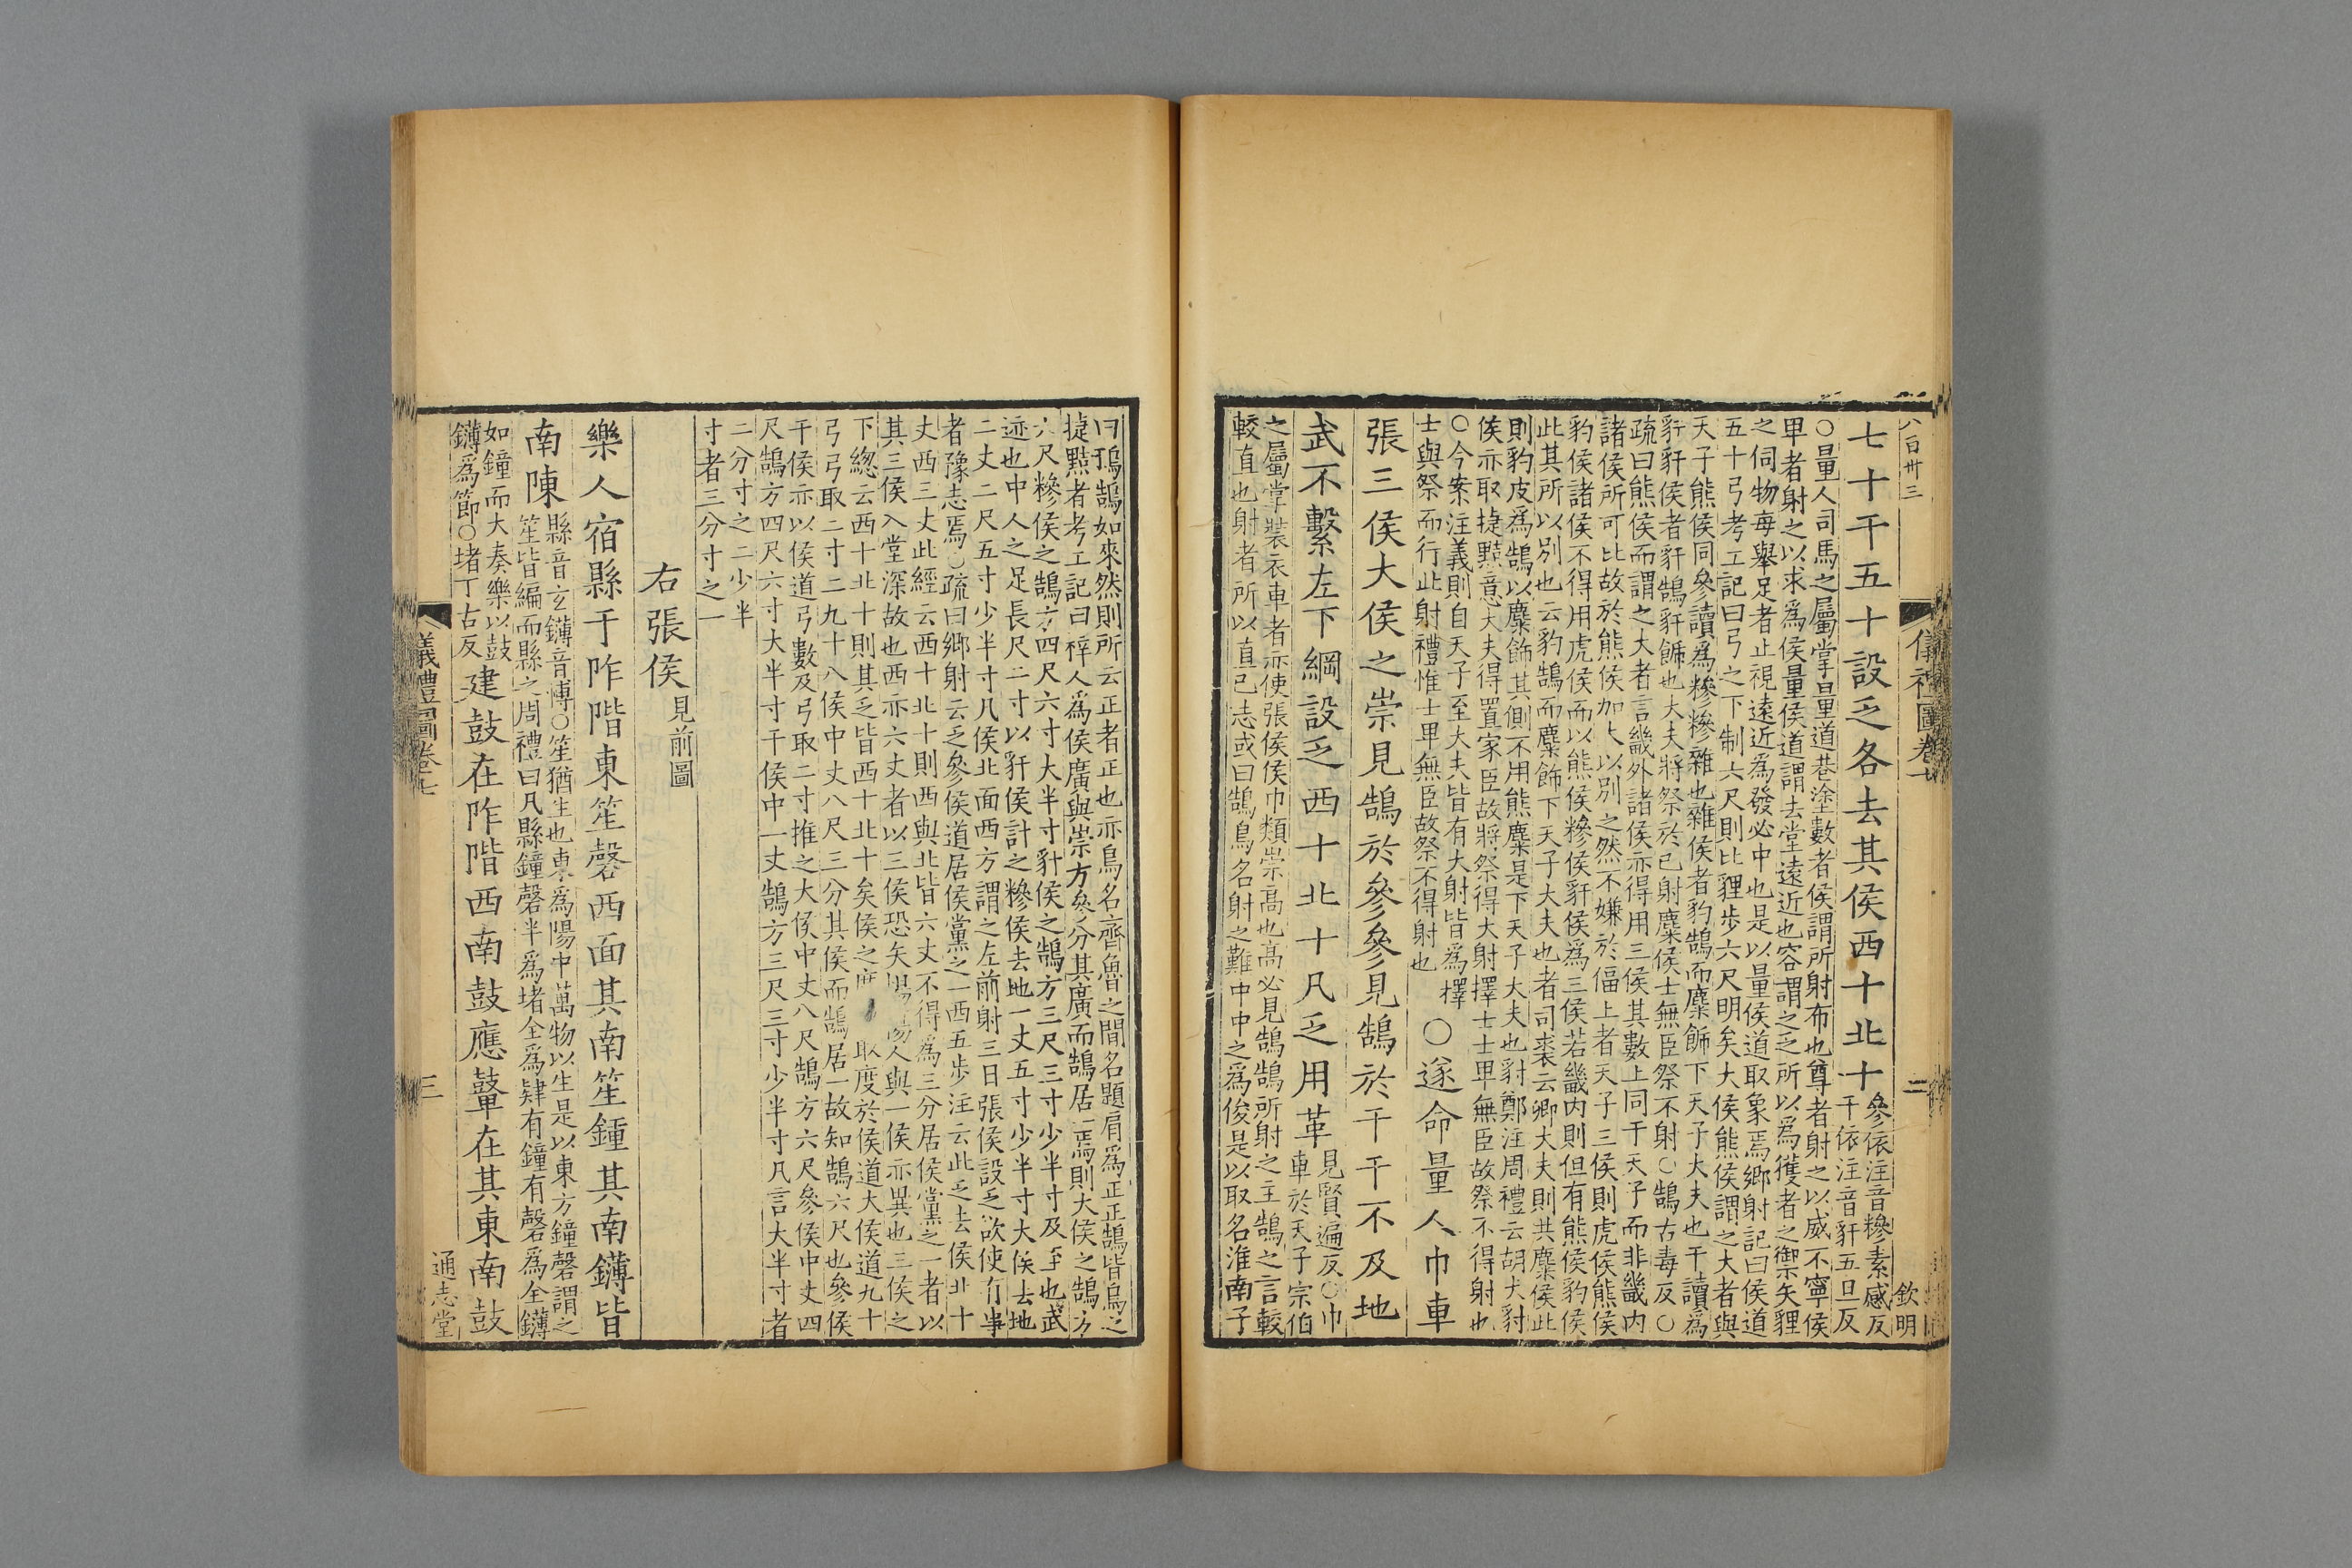 八百卅三
儀禮圖卷七
二
欽明
七十干五十設乏各去其侯西十北十
參依注音糝素感反
干依注音豻五旦反
○量人司馬之屬掌量道巷塗數者侯謂所射布也尊者射之以威不寧侯
卑者射之以求爲侯量侯道謂去堂遠近也容謂之乏所以爲獲者之禦矢貍
之伺物每舉足者止視遠近爲發必中也是以量侯道取象焉鄉射記曰侯道
五十弓考工記曰弓之下制六尺則此貍步六尺明矣大侯熊侯謂之大者與
天子熊侯同參讀爲糝糝雜也雜侯者豹鵠而麋飾下天子大夫也干讀爲
豻豻侯者豻鵠豻飾也大夫將祭於己射麋侯士無臣祭不射○鵠古毒反○
疏曰熊侯而謂之大者言畿外諸侯亦得用三侯其數上同于天子而非畿内
諸侯所可比故於熊侯加大以別之然不嫌於偪上者天子三侯則虎侯熊侯
豹侯諸侯不得用虎侯而以熊侯糝侯豻侯爲三侯若畿内則但有熊侯豹侯
此其所以別也云豹鵠而麋飾下天子大夫也者司裘云卿大夫則共麋侯此
則豹皮爲鵠以麋飾其側不用熊麋是下天子大夫也豻鄭注周禮云胡犬豻
侯亦取捷黠意大夫得置家臣故將祭得大射擇士士卑無臣故祭不得射也
○今案注義則自天子至大夫皆有大射皆爲擇
士與祭而行此射禮惟士卑無臣故祭不得射也
○遂命量人巾車
張三侯大侯之崇見鵠於參參見鵠於干干不及地
武不繫左下綱設乏西十北十凡乏用革
見賢遍反○巾
車於天子宗伯
之屬掌裝衣車者亦使張侯侯巾類崇高也高必見鵠鵠所射之主鵠之言較
較直也射者所以直己志或曰鵠鳥名射之難中中之爲俊是以取名淮南子
曰鳱鵠知來然則所云正者正也亦鳥名齊魯之間名題肩爲正正鵠皆鳥之
捷黠者考工記曰梓人爲侯廣與崇方參分其廣而鵠居一焉則大侯之鵠方
六尺糝侯之鵠方四尺六寸大半寸豻侯之鵠方三尺三寸少半寸及至也武
迹也中人之足長尺二寸以豻侯計之糝侯去地一丈五寸少半寸大侯去地
二丈二尺五寸少半寸凡侯北面西方謂之左前射三日張侯設乏欲使有事
者豫志焉○疏曰鄉射云乏參侯道居侯黨之一西五步注云此乏去侯北十
丈西三丈此經云西十北十則西與北皆六丈不得爲三分居侯黨之一者以
其三侯入堂深故也西亦六丈者以三侯恐矢揚傷人與一侯亦異也三侯之
下緫云西十北十則其乏皆西十北十矣侯之廣取度於侯道大侯道九十
弓弓取二寸二九十八侯中丈八尺三分其侯而鵠居一故知鵠六尺也參侯
干侯亦以侯道弓數及弓取二寸推之大侯中丈八尺鵠方六尺參侯中丈四
尺鵠方四尺六寸大半寸干侯中一丈鵠方三尺三寸少半寸凡言大半寸者
二分寸之二少半
寸者三分寸之一
右張侯
見前圖
樂人宿縣于阼階東笙磬西面其南笙鍾其南鑮皆
南陳
縣音玄鑮音博○笙猶生也東爲陽中萬物以生是以東方鐘磬謂之
笙皆編而縣之周禮曰凡縣鐘磬半爲堵全爲肆有鐘有磬爲全鑮
如鐘而大奏樂以鼓
鑮爲節○堵丁古反
建鼓在阼階西南鼓應鼙在其東南鼓
儀禮圖卷七
三
通志堂